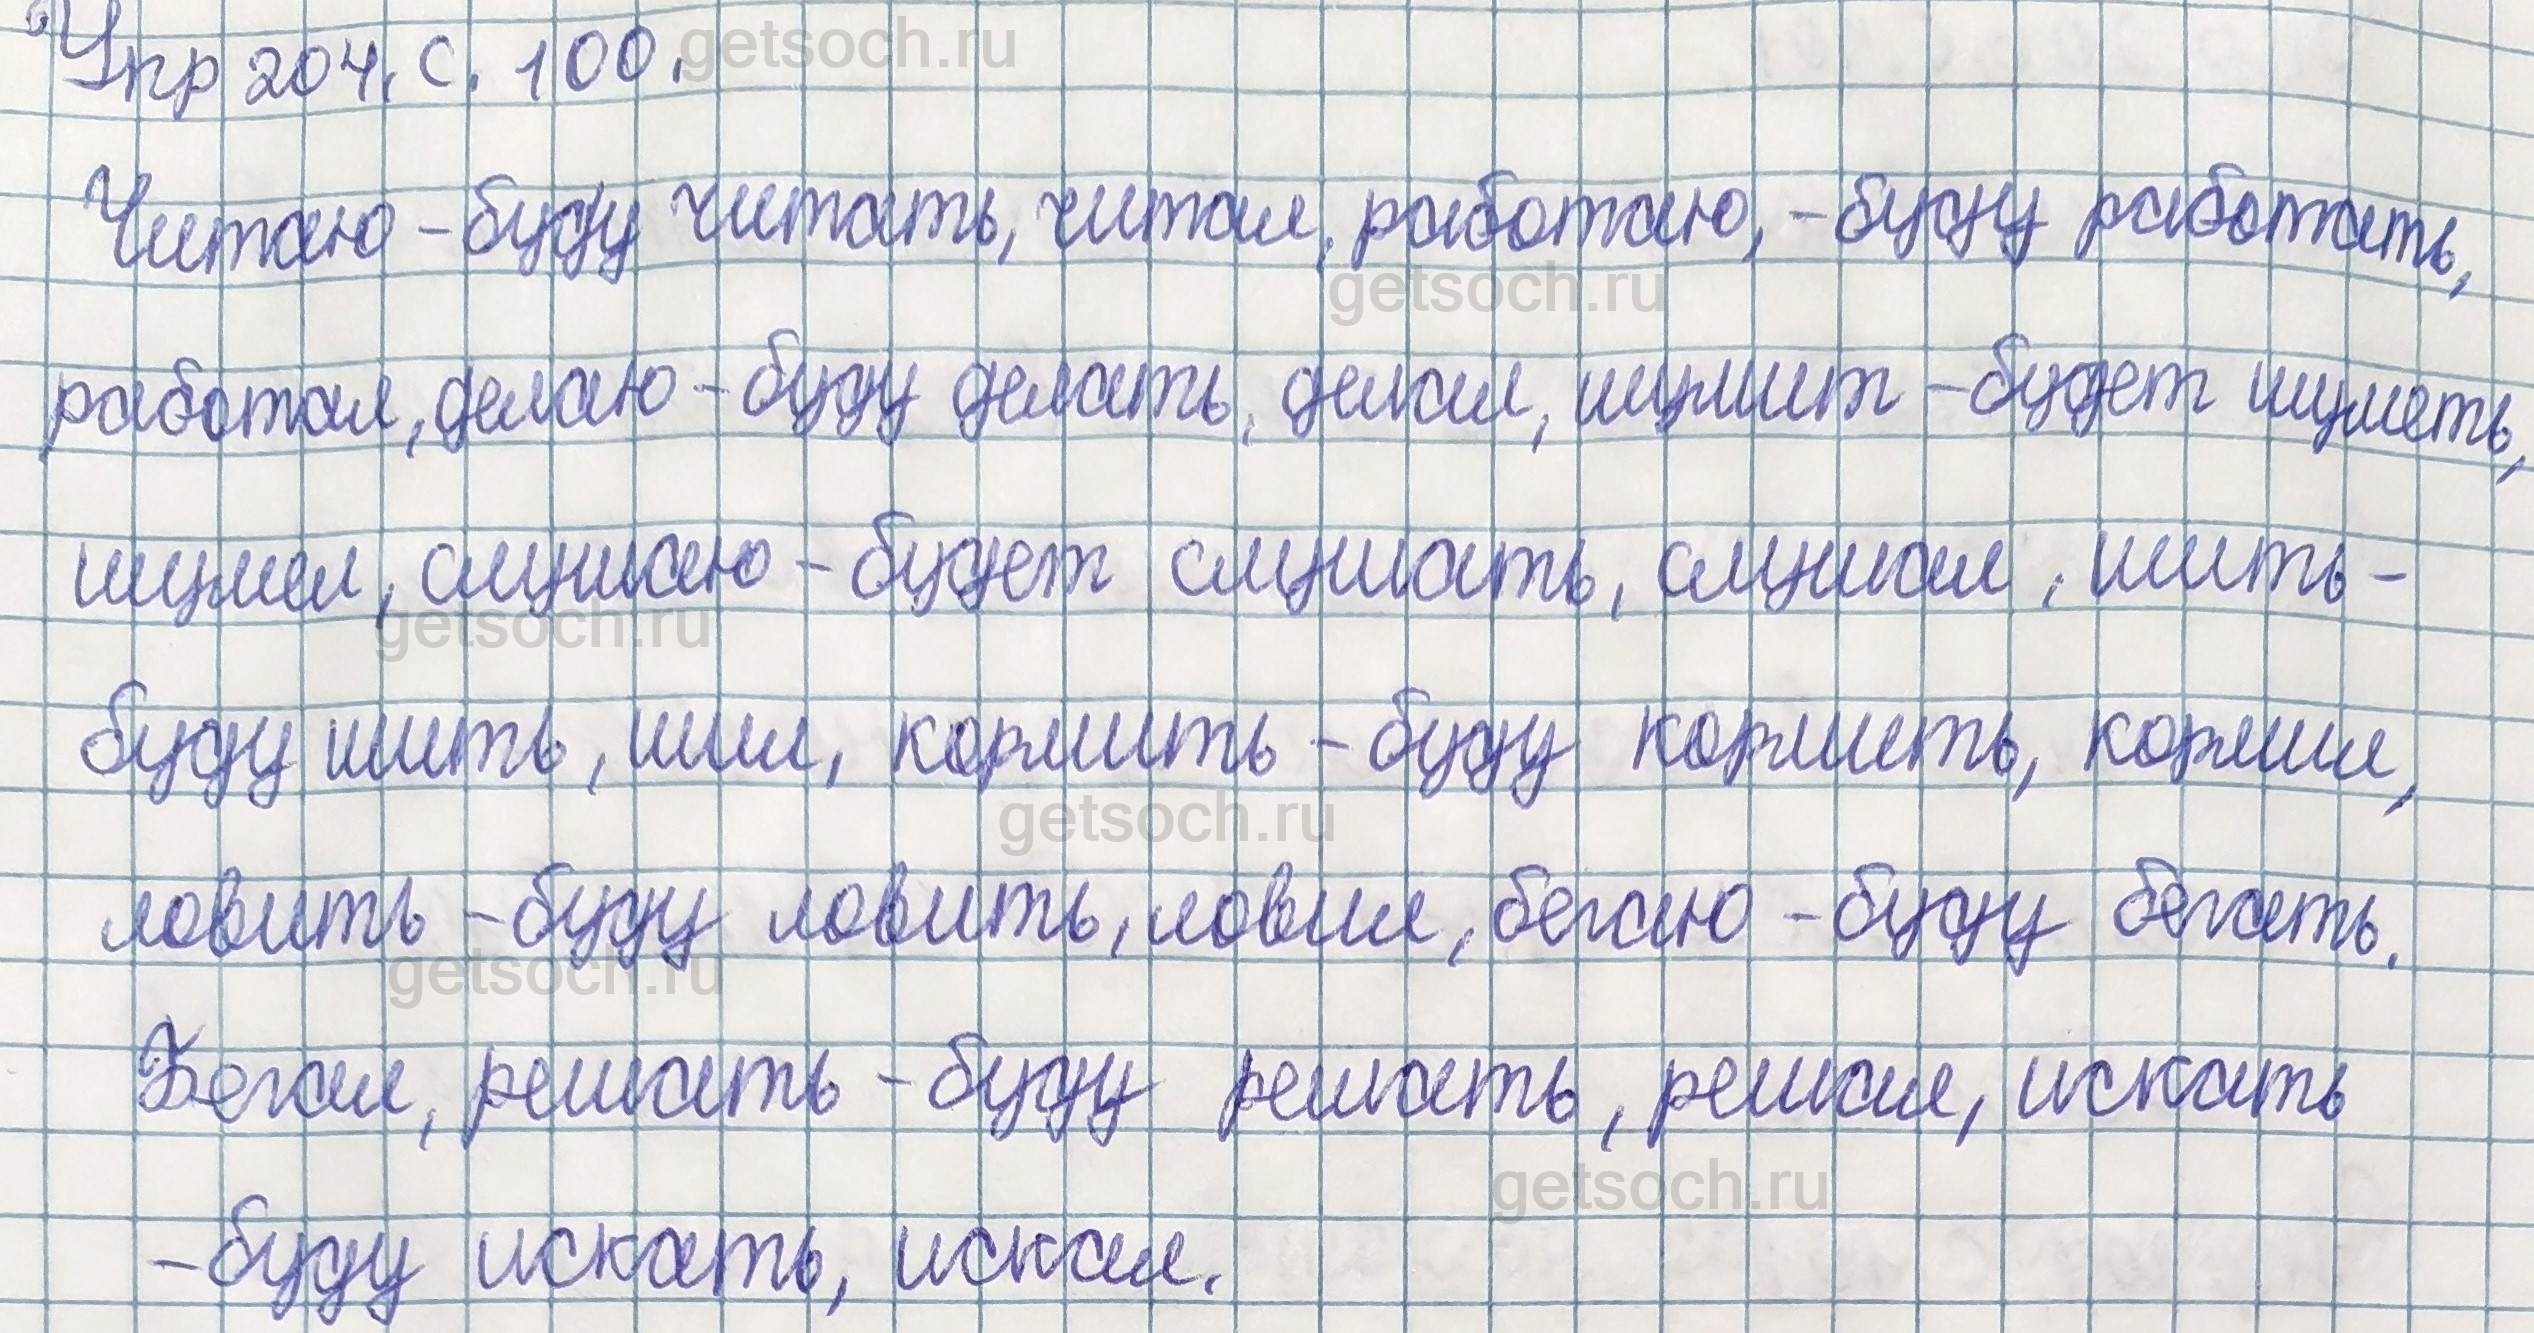 Упр 204. С. 100.
getsoch.ru
Читаю - буду читать, читал, работаю, - буду работать,
getsoch.ru
работал, делаю - буду делать, делал, шумит - будет шуметь,
шумел, слушаю - будет слушать, слушал, шить -
getsoch.ru
буду шить, шил, кормить - буду кормить, кормил,
getsoch.ru
ловить - буду ловить, ловил, бегаю - буду бегать.
getsoch.ru
Бегал, решать - буду решать, решал, искать
getsoch.ru
- буду искать, искал.